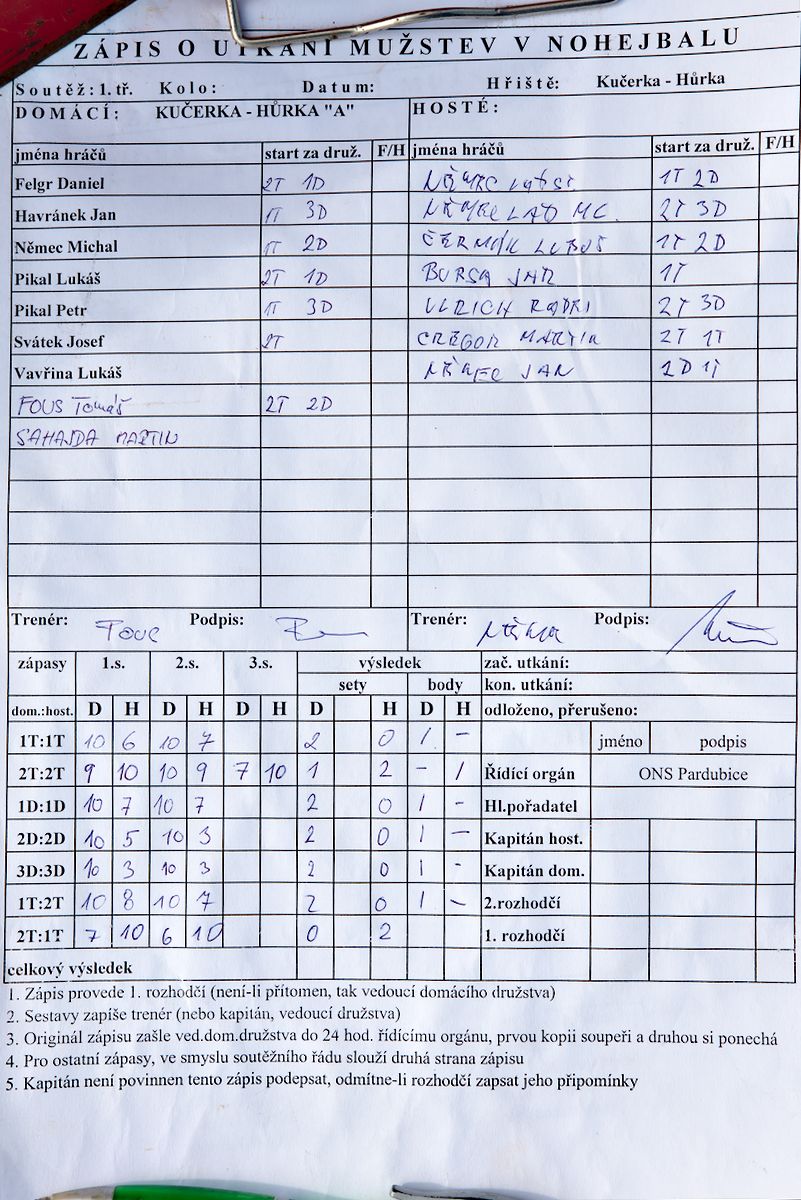 ZÁPIS O UTKÁNÍ MUŽSTEV V NOHEJBALU
Soutěž: 1. tř. Kolo: Datum: Hřiště: Kučerka - Hůrka
DOMÁCÍ: KUČERKA - HŮRKA "A" HOSTÉ:
jména hráčů start za druž. F/H jména hráčů start za druž. F/H
Felgr Daniel 2T 1D NĚMEC 1T 2D
Havránek Jan 1T 3D 2T 3D
Němec Michal 1T 2D ČERMÁK LUBOŠ 1T 2D
Pikal Lukáš 2T 1D BURSA JAN 1T
Pikal Petr 1T 3D ULRICH RADEK 2T 3D
Svátek Josef 2T GREGOR MARTIN 2T 1T
Vavřina Lukáš NĚMEC JAN 2D 1T
FOUS Tomáš 2T 2D
SAHAJDA MARTIN
Trenér: FOUS Podpis: Trenér: Podpis:
zápasy 1.s. 2.s. 3.s. výsledek zač. utkání:
sety body kon. utkání:
dom.:host. D H D H D H D H D H odloženo, přerušeno:
1T:1T 10 6 10 7 2 0 1 - jméno podpis
2T:2T 9 10 10 9 7 10 1 2 - 1 Řídící orgán ONS Pardubice
1D:1D 10 7 10 7 2 0 1 - Hl.pořadatel
2D:2D 10 5 10 3 2 0 1 - Kapitán host.
3D:3D 10 3 10 3 2 0 1 - Kapitán dom.
1T:2T 10 8 10 7 2 0 1 - 2.rozhodčí
2T:1T 7 10 6 10 0 2 1. rozhodčí
celkový výsledek
1. Zápis provede 1. rozhodčí (není-li přítomen, tak vedoucí domácího družstva)
2. Sestavy zapíše trenér (nebo kapitán, vedoucí družstva)
3. Originál zápisu zašle ved.dom.družstva do 24 hod. řídícímu orgánu, prvou kopii soupeři a druhou si ponechá
4. Pro ostatní zápasy, ve smyslu soutěžního řádu slouží druhá strana zápisu
5. Kapitán není povinnen tento zápis podepsat, odmítne-li rozhodčí zapsat jeho připomínky